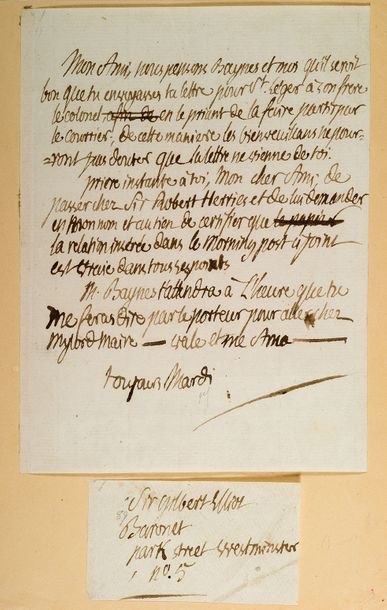 Mon Ami, nous pensons Baynes et moi qu'il seroit
bon que tu envoyasses ta lettre pour St. Leger à son frere
le colonel afin de en le priant de la faire partir par
le courrier, de cette maniere les bienveuillans ne pour=
=ront pas douter que la lettre ne vienne de toi.
priere instante à toi, Mon cher Ami, de
passer chez Sir Robert Herries et de lui demander
en mon nom et au tien de certifier que le papier
la relation inserée dans le Morning post ci joint
est vraie dans tous ses points
Mr. Baynes t'atendra à L'heure que tu
me feras dire par le porteur pour aller chez
Mylord Maire — vale et me Ama —
toujours Mardi
Sir Gilbert Elliot
Baronet
park street Westminster
no. 5